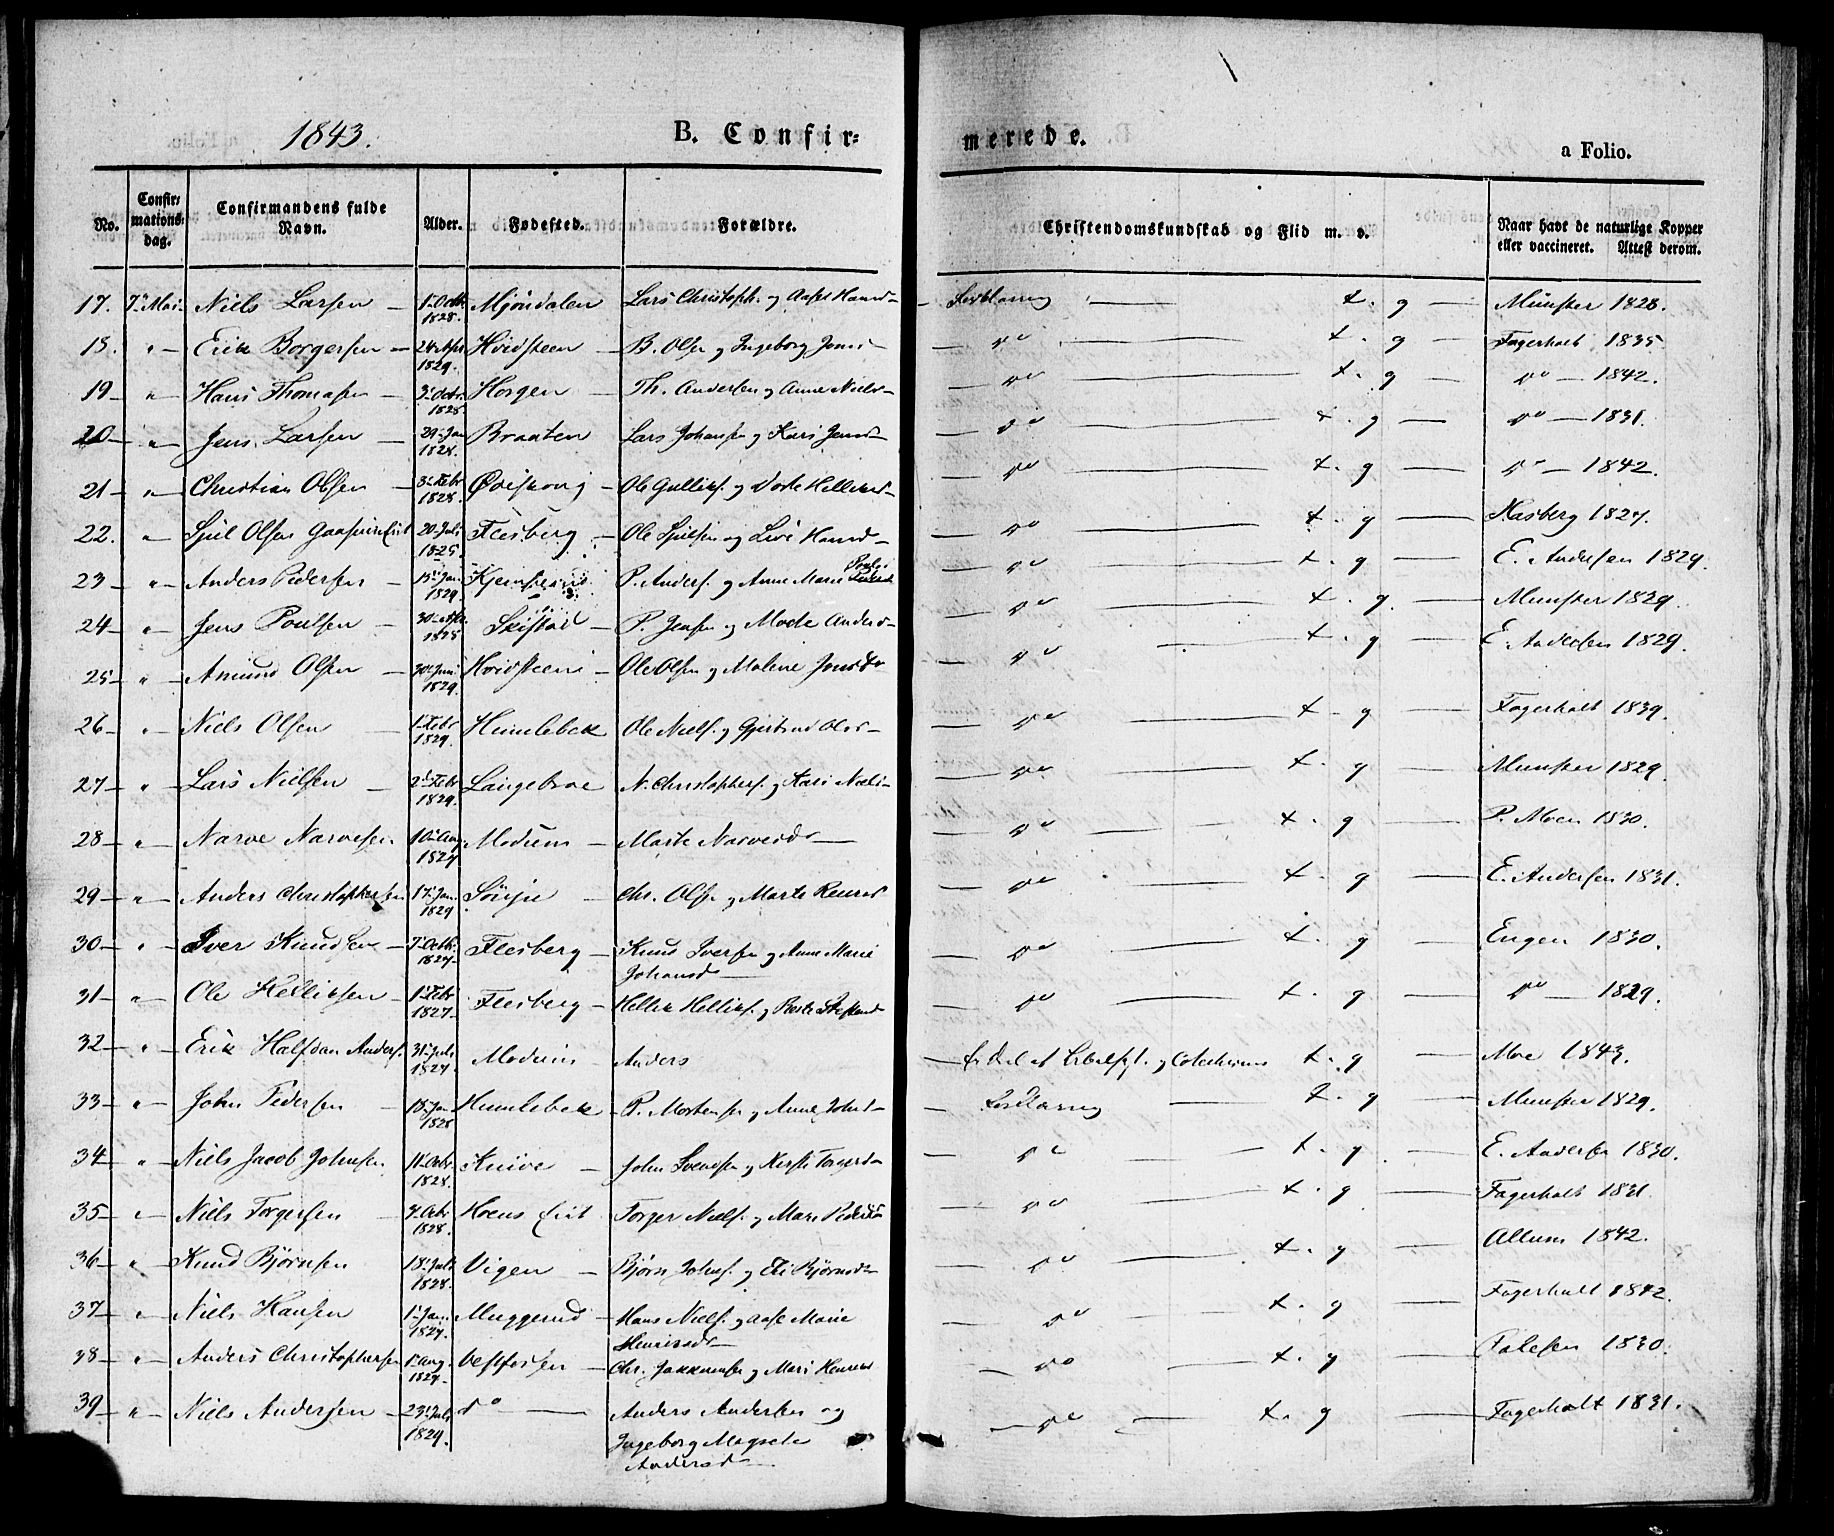 1843. B. Confir=
merede.
a Folio.
No. Confir=mations=dag. Confirmandens fulde Navn. Alder. Fødested. Forældre.
Christendomskundskab og Flid m. v. Naar havt de naturlige Kopper eller vaccineret. Attest derom.
17. 7de Mai Niels Larsen – 1 Octb 1828. Mjøndalen Lars Christoph. og Aase Hansd – t. g – Münster 1828.
18. " Erik Borgersen – 24 Apr 1829. Hvidsteen – B. Olsen og Ingeborg Jensd – do – t. g – Fagerholt 1835
19 – " Hans Thomasen – 3 Octbr 1828 Horgen – Th. Andersen og Anne Nielsd – do – t. g – do – 1842.
20 – " Jens Larsen – 29 Jan 1828. Braaten Lars Johansen og Kari Jensd – do – t. g – do – 1831.
21 – " Christian Olsen – 3 Febr 1828. – Ole Gulliks. og Dorte Helliksd – do – t. g – do – 1842.
22. " Olsen 20 Juli 1825 Flesberg – Ole og Live Hansd – do – t. g – Kasberg 1827.
23 – " Anders Pedersen – 15 Jan 1829. P. Anders. og Anne Marie – do – t. g – E. Andersen 1829.
24 – " Jens Poulsen – 30 1828 Skistad – P. Jensen og Marte Andersd – do – t. g. – Münster 1829.
25 – " Amund Olsen – 30 Juni 1829. Hvidsteen – Ole Olsen og Malene Jonsdr – do – t. g – E. Andersen 1829.
26 – " Niels Olsen – 1 Febr 1829. Humlebek Ole Niels. og Gjertrud Olsd – do – t – g – Fagerholt 1839.
27 – " Lars Nielsen – 2 Febr 1829. Langebroe N. Christophers. og Kari Nielsd – do – t. g – Münster 1829.
28 – " Narve Narvesen 10 Aug 1827 Modum – Marte Narvesdr – do – t. g – P. Moen 1830.
29 – " Anders Christophersen 17 Jan. 1829 – Chr. Olsen og Marte – do – t. g – E. Andersen 1831.
30 – " Iver Knudsen – 7 Octb. 1827. Flesberg – Knud Iversen og Anne Marie Johansd – do – t. g – Engen 1830.
31 – " Ole Helliksen – 1 Febr 1827. Flesberg – Hellek Helliks. og – do – t. g – do – 1829.
32 – " Erik Halfdan Anders. 31 Juli 1827 Modum Anders – t. g – Moe 1843.
33 – " John Pedersen – 18 Jan 1828 Humlebek P. Mortensen og Anne Johnsd – t. g – Münster 1829.
34 – " Niels Jacob Johnsen 11 Octbr. 1828. Knive – John Svendsen og Kirsti Torgersd – do – t. g. – E. Andersen 1830.
35 – " Niels Torgersen – 7 Octbr. 1828. Hoens Eie Torger Niels. og Mari Pedersdr – do – t. g – Fagerholt 1831
36 – " Knud Bjørnsen 18 Juli 1828. Vigen – Bjørn Johns. og Eli Bjørnsd – do – t. g – Allum 1842.
37 – " Niels Hansen 1 Jan. 1827. Muggerud – Hans Niels. og Aase Marie Henriksdr – do – t. g – Fagerholt 1842.
38 – " Anders Christophersen 1 Aug. 1827. Vestfossen – Chr. og Mari – do – t. g – Paulsen 1830.
39 – " Niels Andersen – 23 Juli 1829. do – Anders Andersen og Ingeborg Magrete Andersd – do – t. g – Fagerholt 1831.